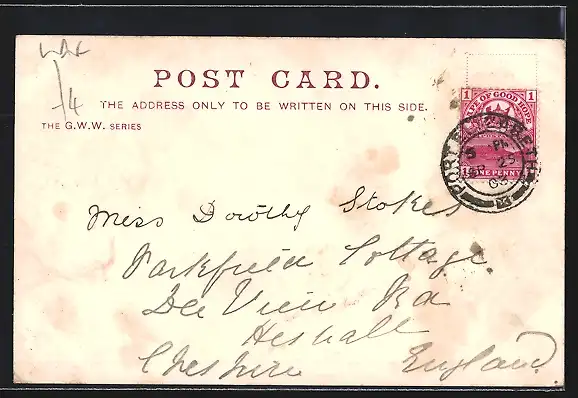 POST CARD.
THE ADDRESS ONLY TO BE WRITTEN ON THIS SIDE.
THE G.W.W. SERIES
1 1
CAPE OF GOOD HOPE
PORT ELIZABETH
5 PM
SP 25
03
ONE PENNY
Miss Dorothy Stokes
Parkfield Cottage.
Dee View Rd
Heswall
Cheshire England